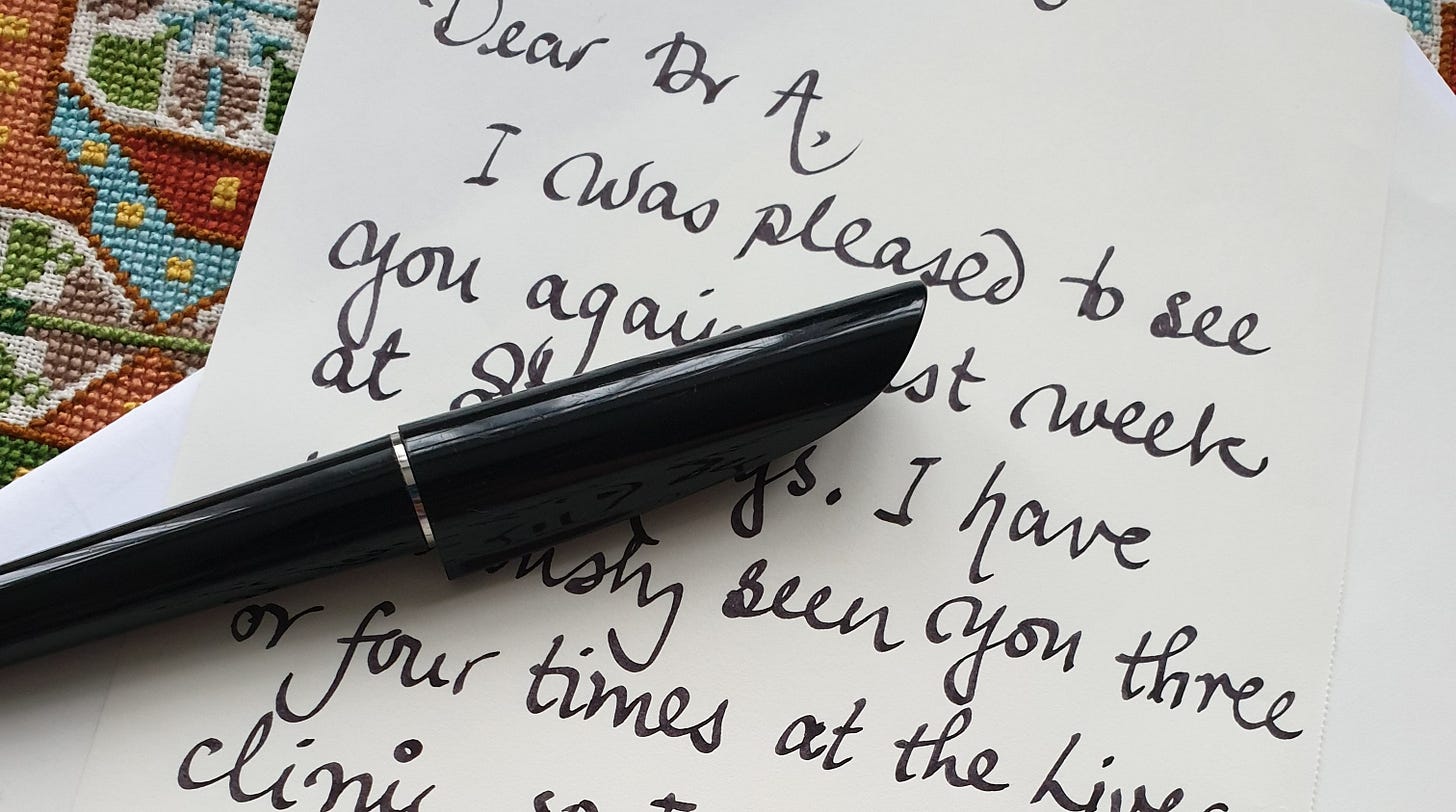 Dear Dr A.
I was pleased to see
you again
at week
I have
seen you three
or four times at the
clinic